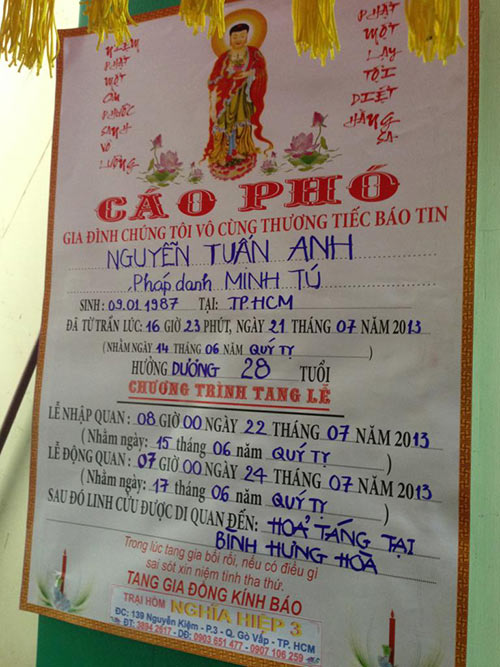 NIỆM
PHẬT
MỘT
CÂU
PHƯỚC
SANH
VÔ
LƯỢNG
PHẬT
MỘT
LẠY
TỘI
DIỆT
HẰNG
SA
CÁO PHÓ
GIA ĐÌNH CHÚNG TÔI VÔ CÙNG THƯƠNG TIẾC BÁO TIN
NGUYỄN TUẤN ANH
Pháp danh MINH TÚ
SINH: 09.01.1987 TẠI: TP.HCM
ĐÃ TỪ TRẦN LÚC: 16 GIỜ 23 PHÚT, NGÀY 21 THÁNG 07 NĂM 2013
(NHẰM NGÀY 14 THÁNG 06 NĂM QUÝ TỴ )
HƯỞNG DƯƠNG 28 TUỔI
CHƯƠNG TRÌNH TANG LỄ
LỄ NHẬP QUAN: 08 GIỜ 00 NGÀY 22 THÁNG 07 NĂM 2013
(Nhằm ngày: 15 tháng 06 năm QUÝ TỴ )
LỄ ĐỘNG QUAN: 07 GIỜ 00 NGÀY 24 THÁNG 07 NĂM 2013
(Nhằm ngày: 17 tháng 06 năm QUÝ TỴ )
SAU ĐÓ LINH CỬU ĐƯỢC DI QUAN ĐẾN: HOẢ TÁNG TẠI
BÌNH HƯNG HOÀ
Trong lúc tang gia bối rối, nếu có điều gì
sai sót xin niệm tình tha thứ.
TANG GIA ĐỒNG KÍNH BÁO
TRẠI HÒM NGHĨA HIỆP 3
ĐC: 139 Nguyễn Kiệm - P.3 - Q. Gò Vấp - TP. HCM
ĐT: 3894 2617 - DĐ: 0903 651 477 - 0907 106 259